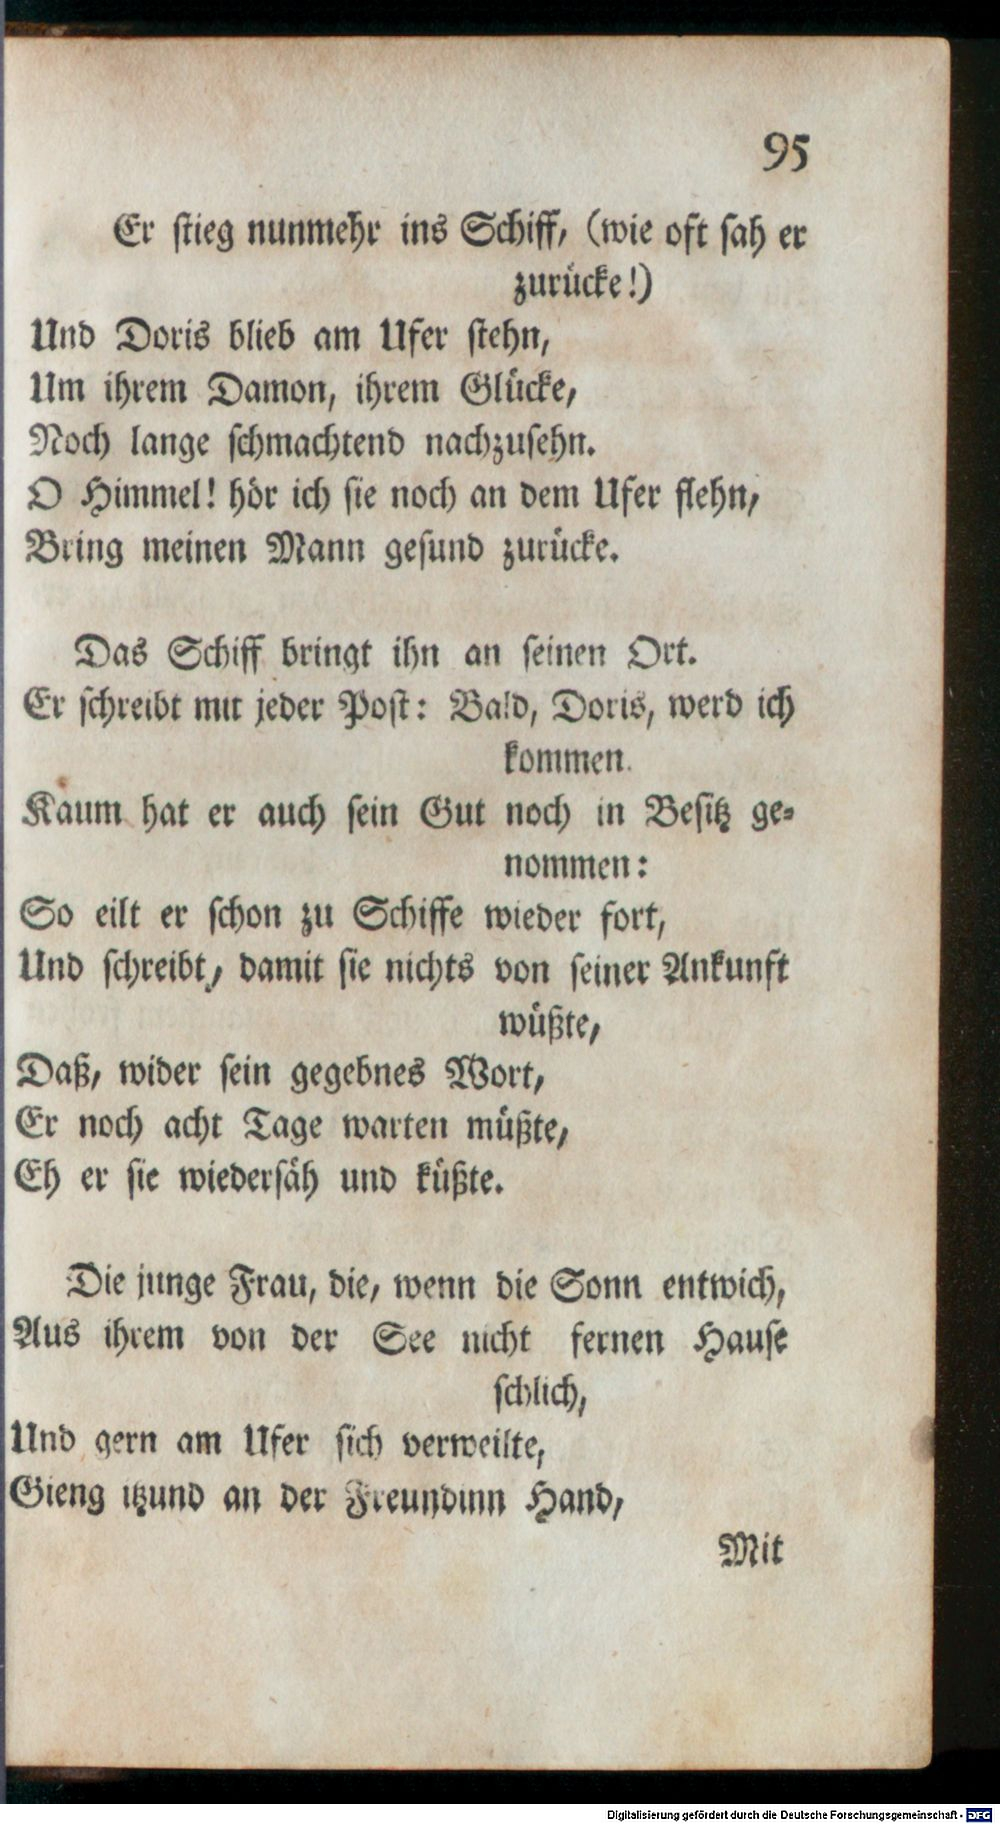 95
Er stieg nunmehr ins Schiff, (wie oft sah er
zurücke!)
Und Doris blieb am Ufer stehn,
Um ihrem Damon, ihrem Glücke,
Noch lange schmachtend nachzusehn.
O Himmel! hör ich sie noch an dem Ufer flehn,
Bring meinen Mann gesund zurücke.
Das Schiff bringt ihn an seinen Ort.
Er schreibt mit jeder Post: Bald, Doris, werd ich
kommen.
Kaum hat er auch sein Gut noch in Besitz ge-
nommen:
So eilt er schon zu Schiffe wieder fort,
Und schreibt, damit sie nichts von seiner Ankunft
wüßte,
Daß, wider sein gegebnes Wort,
Er noch acht Tage warten müßte,
Eh er sie wiedersäh und küßte.
Die junge Frau, die, wenn die Sonn entwich,
Aus ihrem von der See nicht fernen Hause
schlich,
Und gern am Ufer sich verweilte,
Gieng itzund an der Freundinn Hand,
Mit
Digitalisierung gefördert durch die Deutsche Forschungsgemeinschaft - DFG